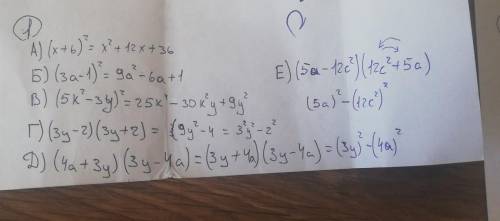 1
А) (x+6)² = x² + 12x + 36
Б) (3a-1)² = 9a² - 6a + 1
В) (5x² - 3y)² = 25x⁴ - 30x²y + 9y²
Г) (3y-2)(3y+2) = 9y² - 4 = 3²y² - 2²
Д) (4a+3y)(3y-4a) = (3y+4a)(3y-4a) = (3y)² - (4a)²
Е) (5a-12c²)(12c²+5a)
(5a)² - (12c²)²